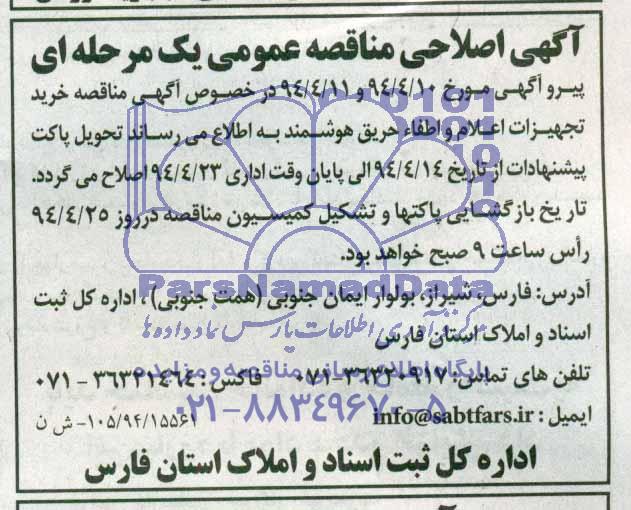 آگهی اصلاحی مناقصه عمومی یک مرحله ای
پیرو آگهی مورخ ۹۴/۴/۱۰ و ۹۴/۴/۱۱ در خصوص آگهی مناقصه خرید
تجهیزات اعلام و اطفاء حریق هوشمند به اطلاع می رساند تحویل پاکت
پیشنهادات از تاریخ ۹۴/٤/۱٤ الی پایان وقت اداری ۹٤/٤/۲۳ اصلاح می گردد.
تاریخ بازگشایی پاکتها و تشکیل کمیسیون مناقصه درروز ۹٤/٤/۲٥
رأس ساعت ۹ صبح خواهد بود.
ParsNamadData
آدرس: فارس، شیراز، بولوار ایمان جنوبی (همت جنوبی)، اداره کل ثبت
اسناد و املاک استان فارس
مرکز فرآوری اطلاعات پارس نماد داده ها
پایگاه اطلاع رسانی مناقصه و مزایده
تلفن های تماس: ۳۶۳۲۰۹۱۷-۰۷۱ فاکس: ۳۶۳۲۱٤٦٤ - ۰۷۱
۰۲۱-۸۸۳٤۹۶۷۰-۵
ایمیل: info@sabtfars.ir ۱۰۵/۹٤/۱۵۵٦۱- ش ن
اداره کل ثبت اسناد و املاک استان فارس